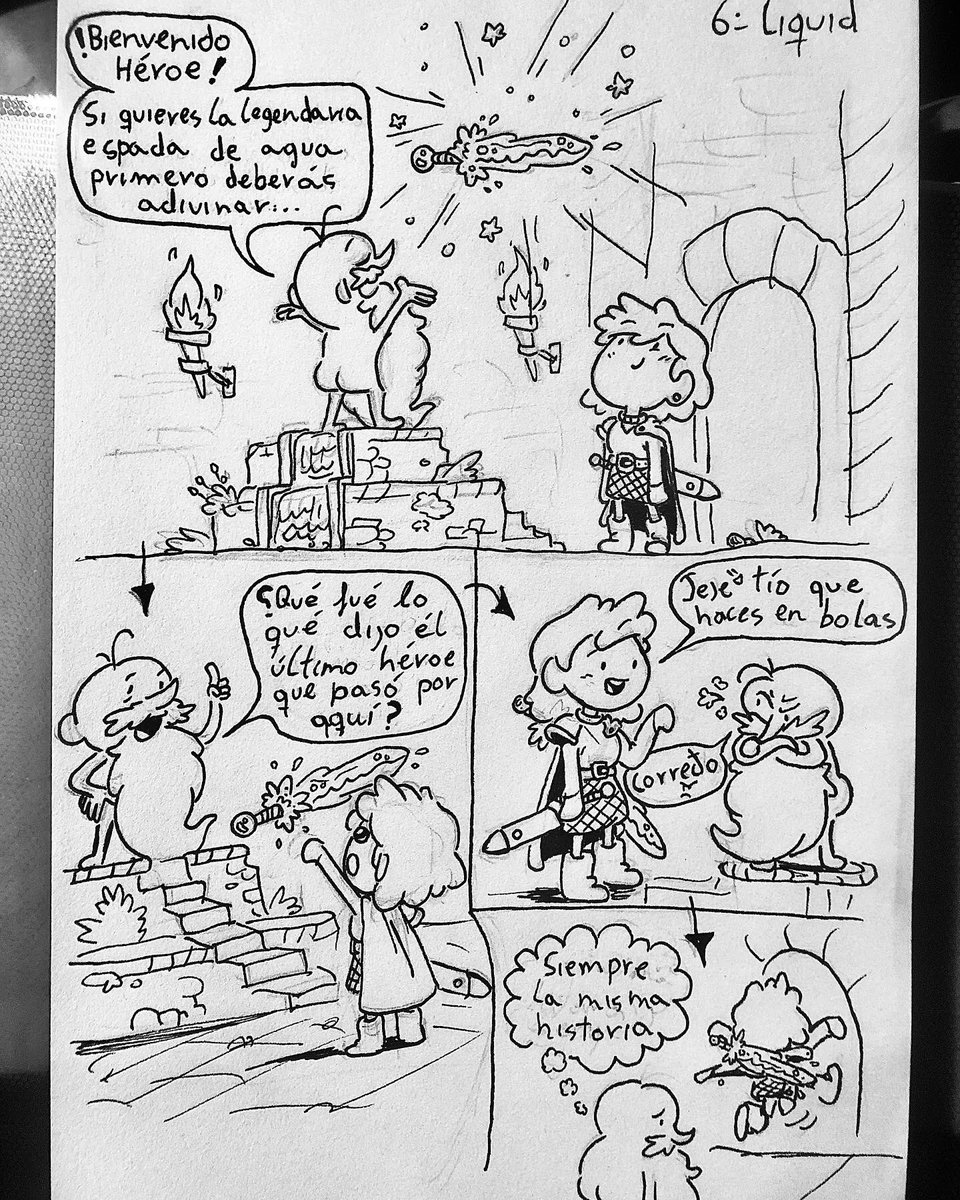 6= Liquid
¡Bienvenido
Héroe!
Si quieres la legendaria
espada de agua
primero deberás
adivinar...
¿Qué fué lo
qué dijo él
último héroe
que pasó por
aquí?
Jeje tío que
haces en bolas
Correcto
Siempre
la misma
historia